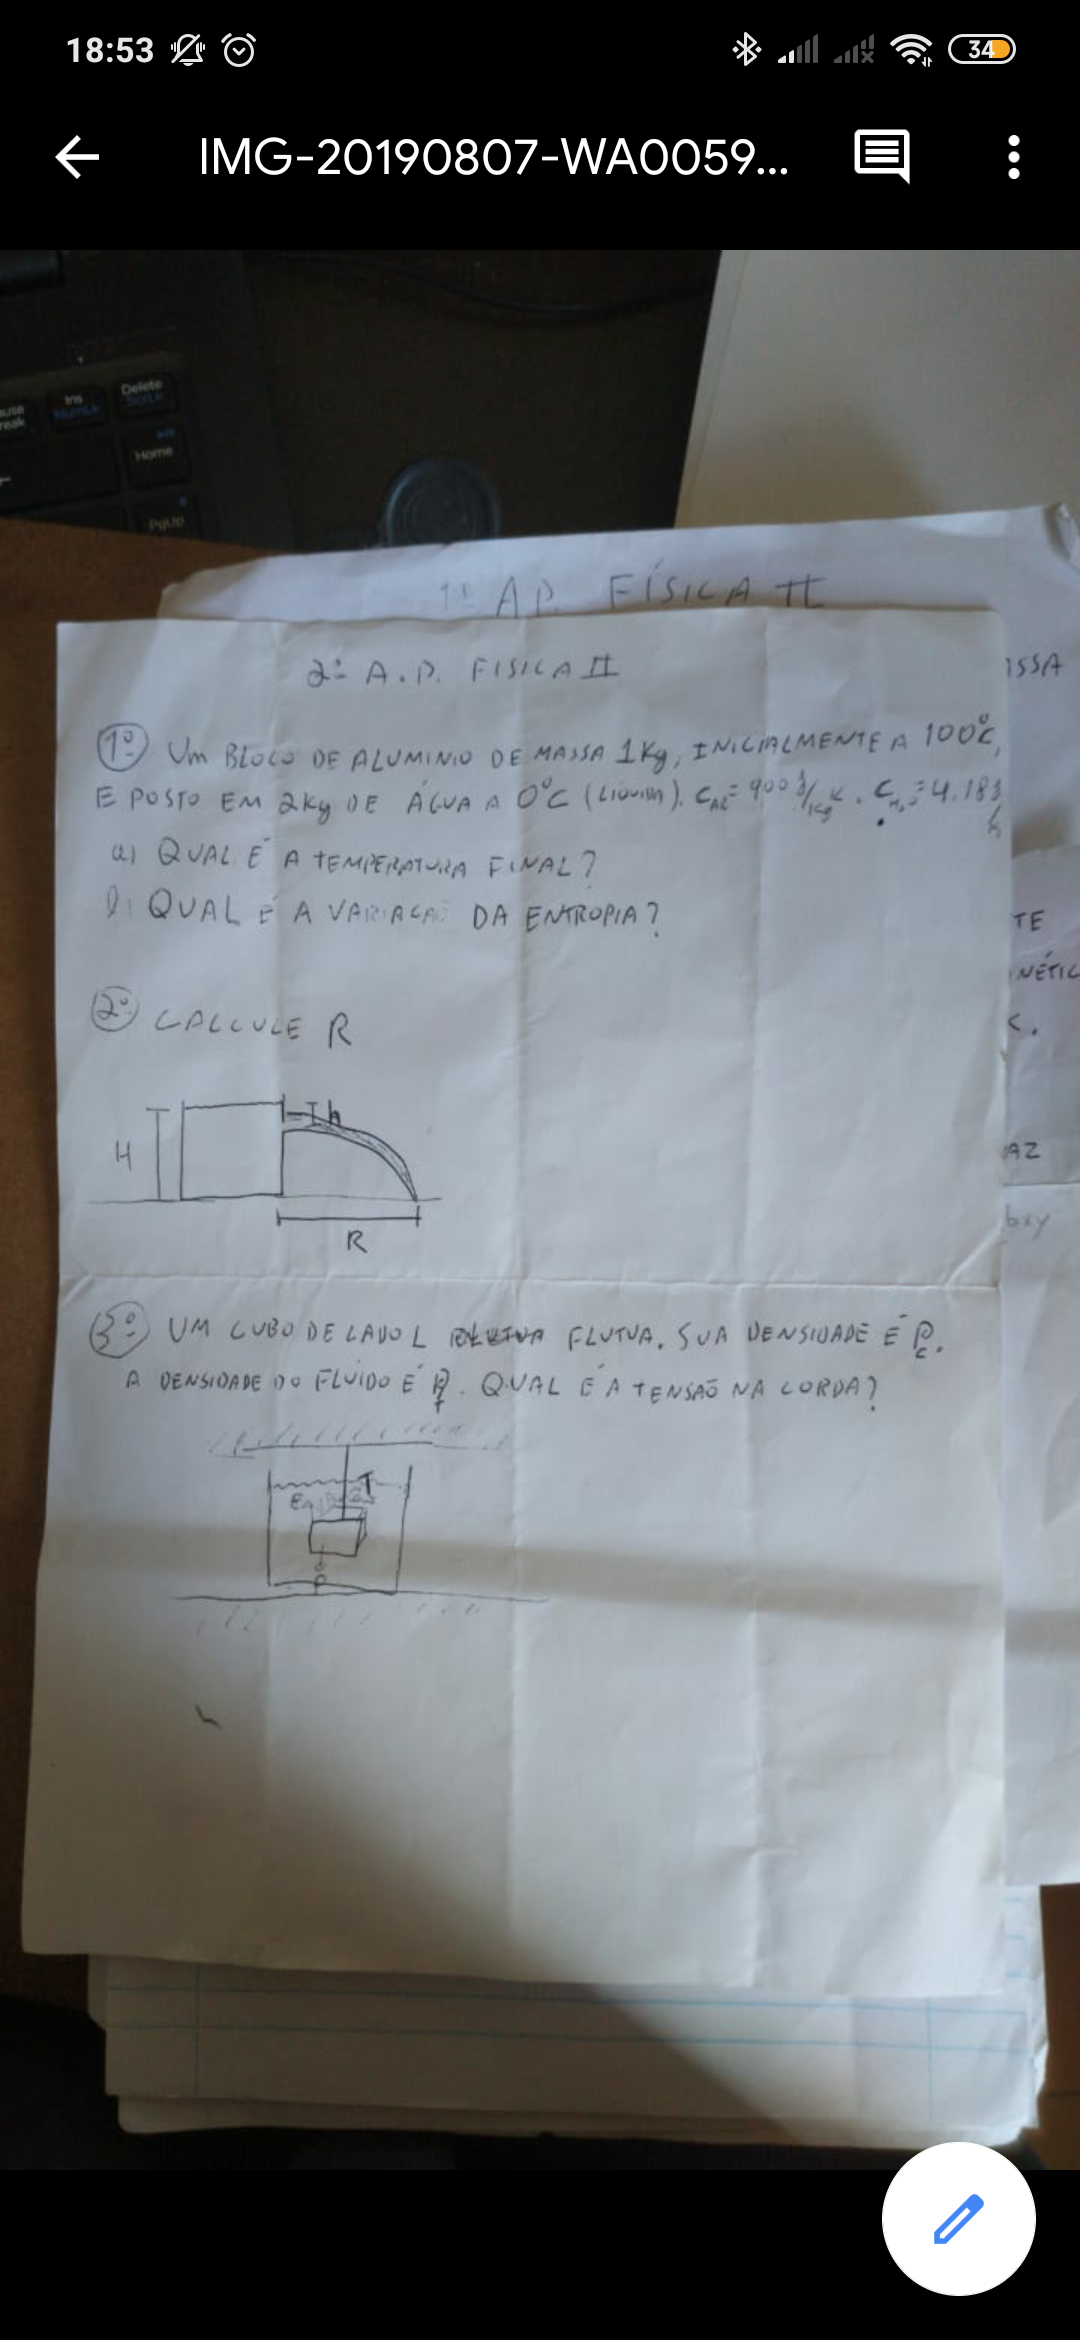 18:53
34
IMG-20190807-WA0059...
Delete
Ins
NumLk
Home
PgUp
1ª AP. FÍSICA II
2ª A.P. FISICA II
ISSA
1º UM BLOCO DE ALUMINIO DE MASSA 1Kg, INICIALMENTE A 100°C,
E POSTO EM 2Kg DE ÁGUA A 0°C (LIQUIDA). C_Al = 900 J/Kg K. C_H2O = 4.18J
a) QUAL É A TEMPERATURA FINAL?
b) QUAL É A VARIACAO DA ENTROPIA?
TE
NÉTIC
2º CALCULE R
h
H
R
AZ
bxy
3º UM CUBO DE LADO L FLUTUA. SUA DENSIDADE É ρc.
A DENSIDADE DO FLUÍDO É ρf. QUAL É A TENSÃO NA CORDA?
T